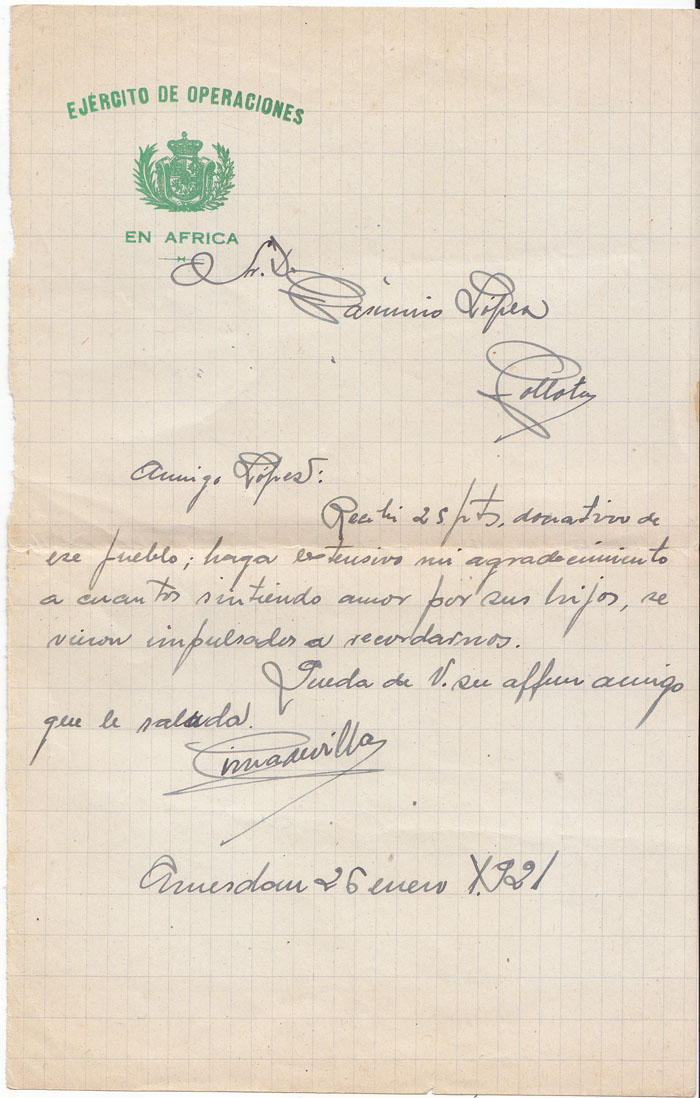 EJÉRCITO DE OPERACIONES
EN AFRICA
Sr. D.
Casimiro López
Colloto
Amigo López:
Recibi 25 pts, donativo de
ese pueblo; haga extensivo mi agradecimiento
a cuantos sintiendo amor por sus hijos, se
vieron impulsados a recordarnos.
Queda de V. su affmo amigo
que le saluda.
Cimadevilla
26 enero 1.921